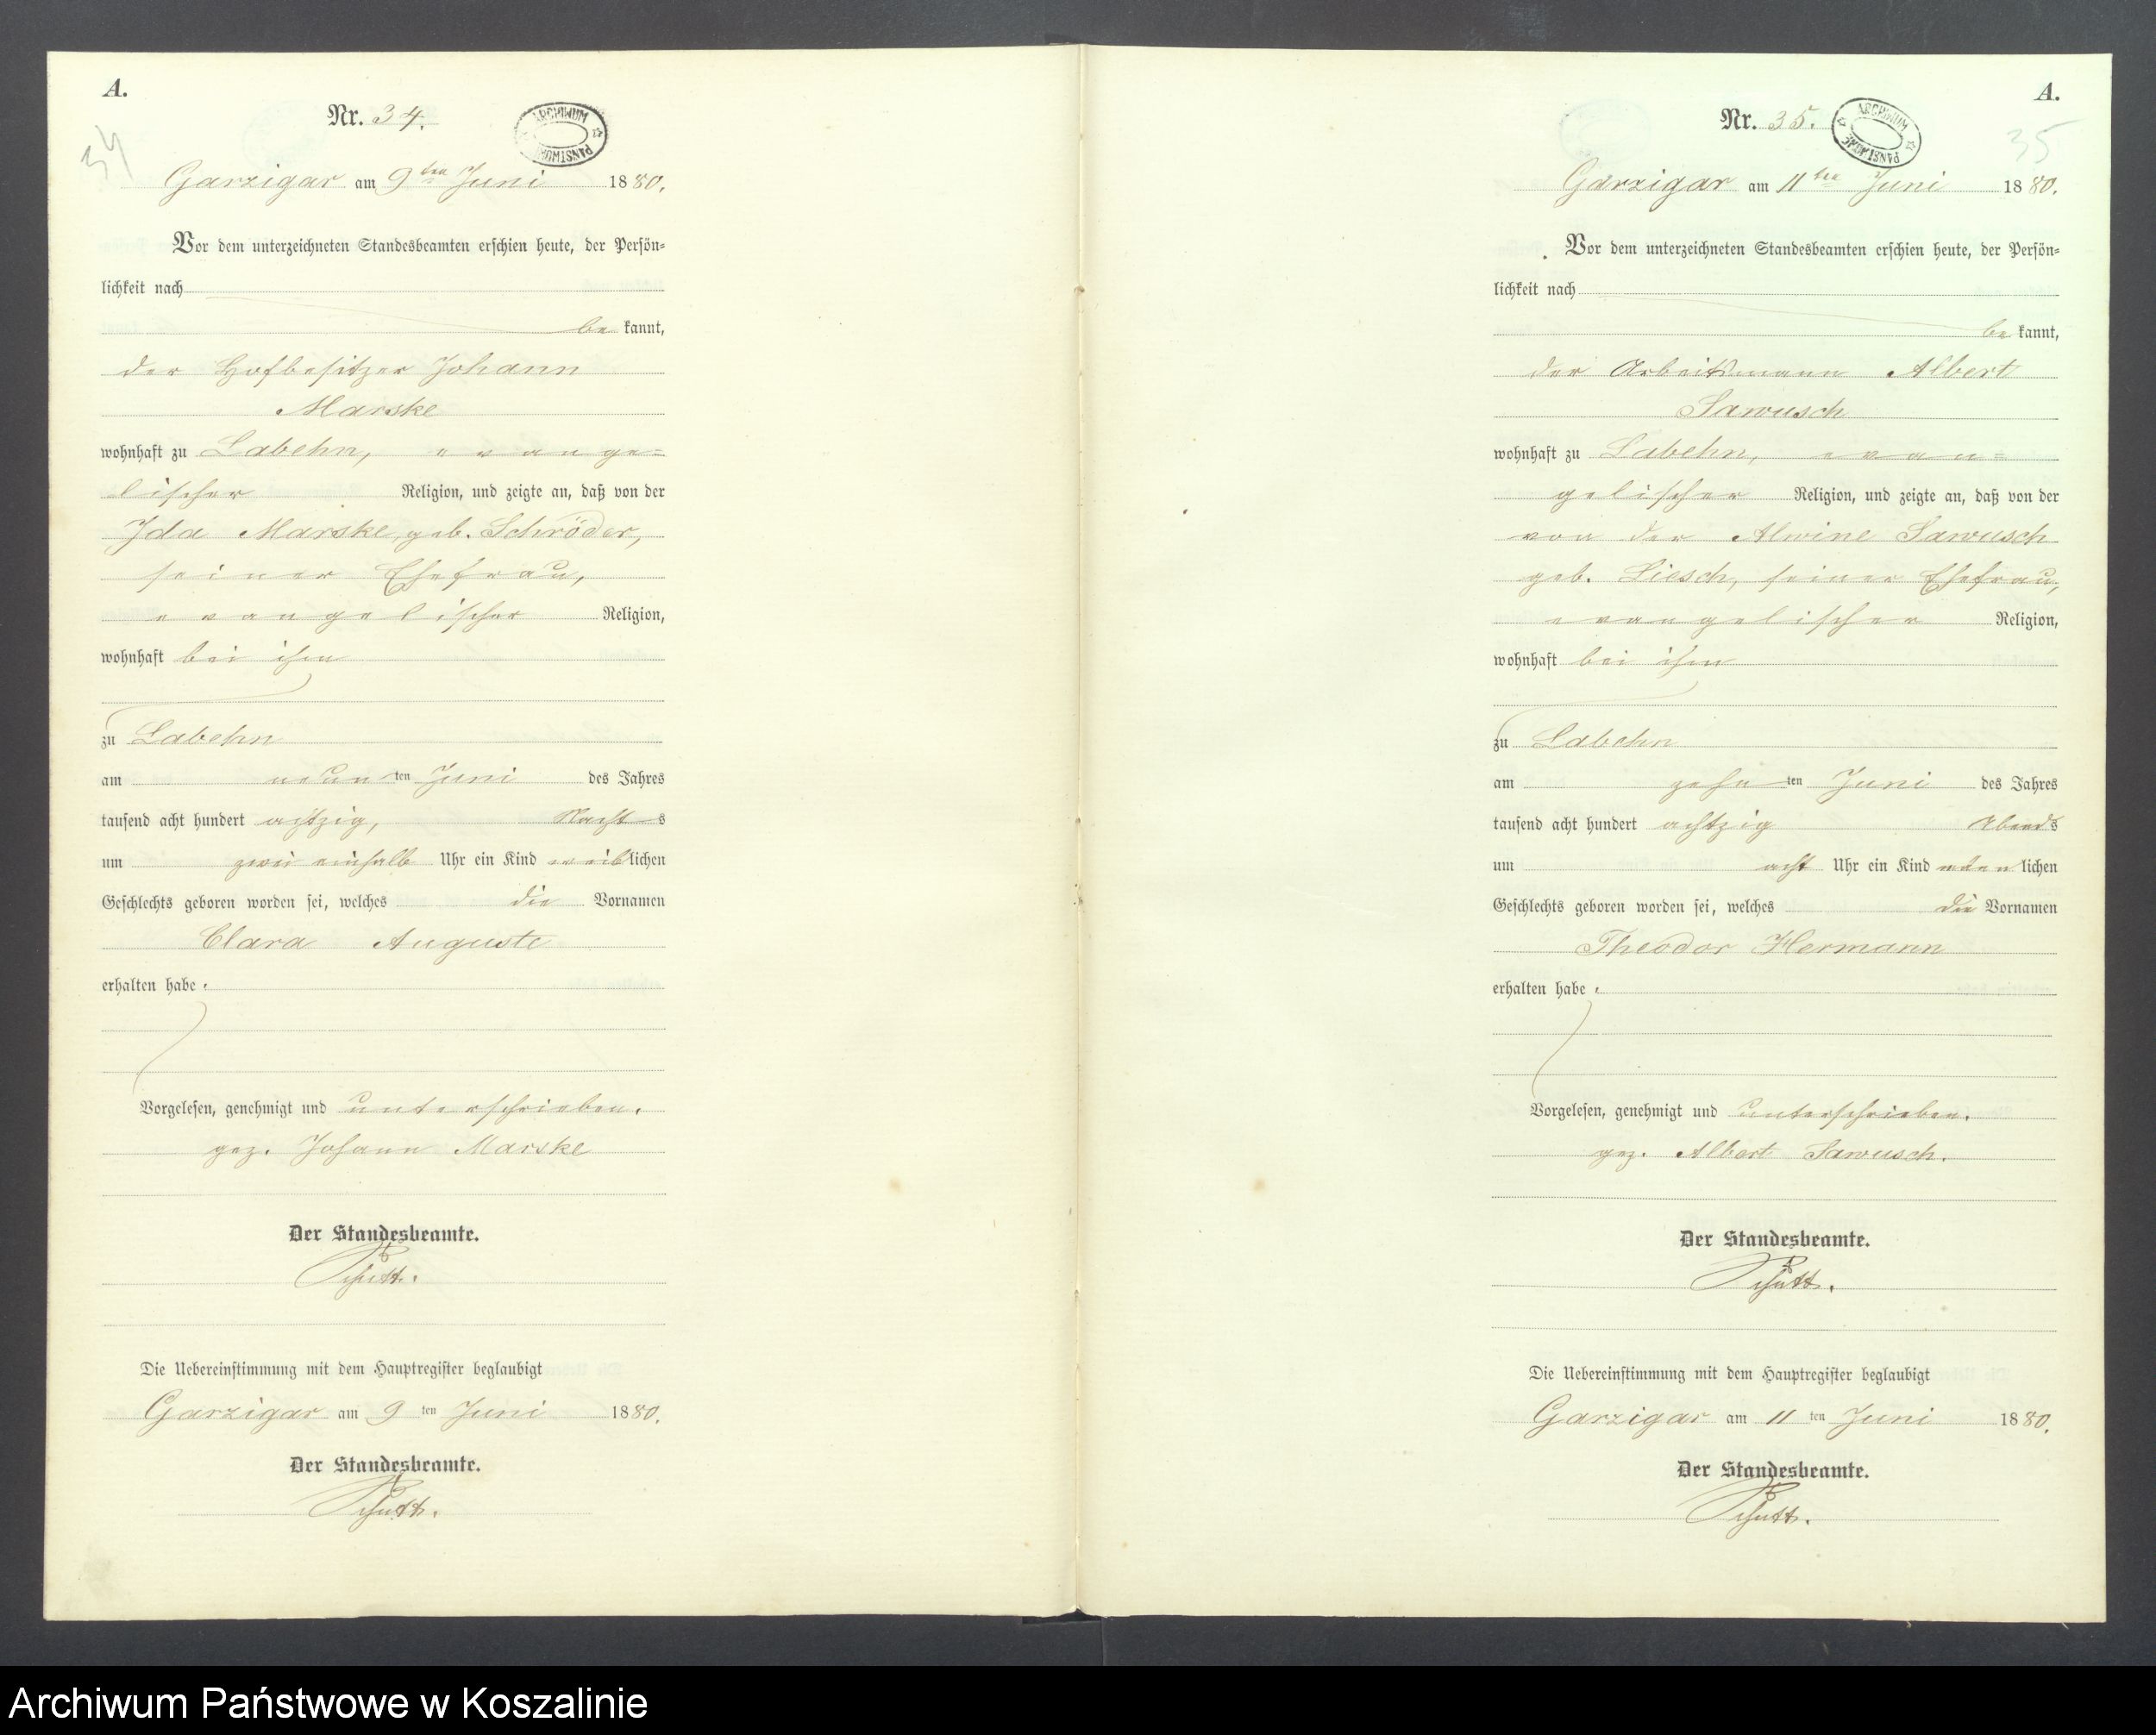 A.
Nr. 34.
34
ARCHIWUM PAŃSTWOWE
Garzigar am 9ten Juni 1880.
Vor dem unterzeichneten Standesbeamten erschien heute, der Persön=
lichkeit nach
be kannt,
der Hofbesitzer Johann
Marske
wohnhaft zu Labehn, evange=
lischer Religion, und zeigte an, daß von der
Ida Marske, geb. Schröder,
seiner Ehefrau,
evangelischer Religion,
wohnhaft bei ihm
zu Labehn
am neun ten Juni des Jahres
tausend acht hundert achtzig, Nacht s
um zwei einhalb Uhr ein Kind weiblichen
Geschlechts geboren worden sei, welches die Vornamen
Clara Auguste
erhalten habe.
Vorgelesen, genehmigt und unterschrieben.
gez. Johann Marske
Der Standesbeamte.
Schütt.
Die Uebereinstimmung mit dem Hauptregister beglaubigt
Garzigar am 9 ten Juni 1880.
Der Standesbeamte.
Schütt.
A.
Nr. 35.
35
ARCHIWUM PAŃSTWOWE
Garzigar am 11ten Juni 1880.
Vor dem unterzeichneten Standesbeamten erschien heute, der Persön=
lichkeit nach
be kannt,
der Arbeitsmann Albert
Sawusch
wohnhaft zu Labehn, evan=
gelischer Religion, und zeigte an, daß von der
von der Alwine Sawusch
geb. Liesch, seiner Ehefrau,
evangelischer Religion,
wohnhaft bei ihm
zu Labehn
am zehn ten Juni des Jahres
tausend acht hundert achtzig Abends
um acht Uhr ein Kind männlichen
Geschlechts geboren worden sei, welches die Vornamen
Theodor Hermann
erhalten habe.
Vorgelesen, genehmigt und unterschrieben.
gez. Albert Sawusch.
Der Standesbeamte.
Schütt.
Die Uebereinstimmung mit dem Hauptregister beglaubigt
Garzigar am 11 ten Juni 1880.
Der Standesbeamte.
Schütt.
Archiwum Państwowe w Koszalinie